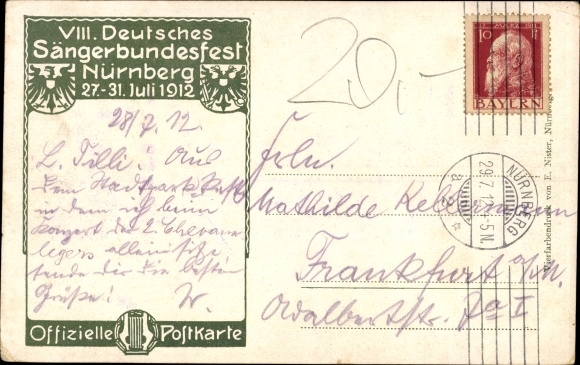 VIII. Deutsches
Sängerbundesfest
Nürnberg
27.-31. Juli 1912
28/7. 12.
L. Tilli! Aus
dem Stadtpark
in dem ich beim
Konzert der 2. Chevaux
legers allein sitze
sende dir die besten
Grüße! W.
Offizielle Postkarte
20,-
10 Pf
BAYERN
NÜRNBERG
29.7.12. 5N.
a 2 *
Frln.
Mathilde Kellermann
Frankfurt a/M.
Adalbertstr. 7a I
Vierfarbendruck von E. Nister, Nürnberg